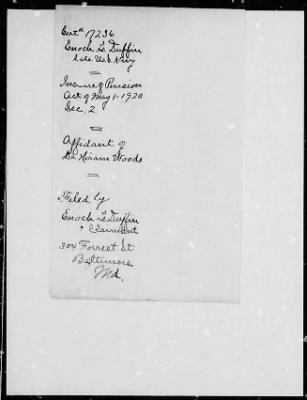 Cert # 17236
Enoch L. Duffin
Late U.S. Navy
Increase of Pension
Act of May 1-1920
Sec. 2
Affidavit of
Dr. Hiram Woods
Filed by
Enoch L. Duffin
Claimant
304 Forrest St
Baltimore
Md.